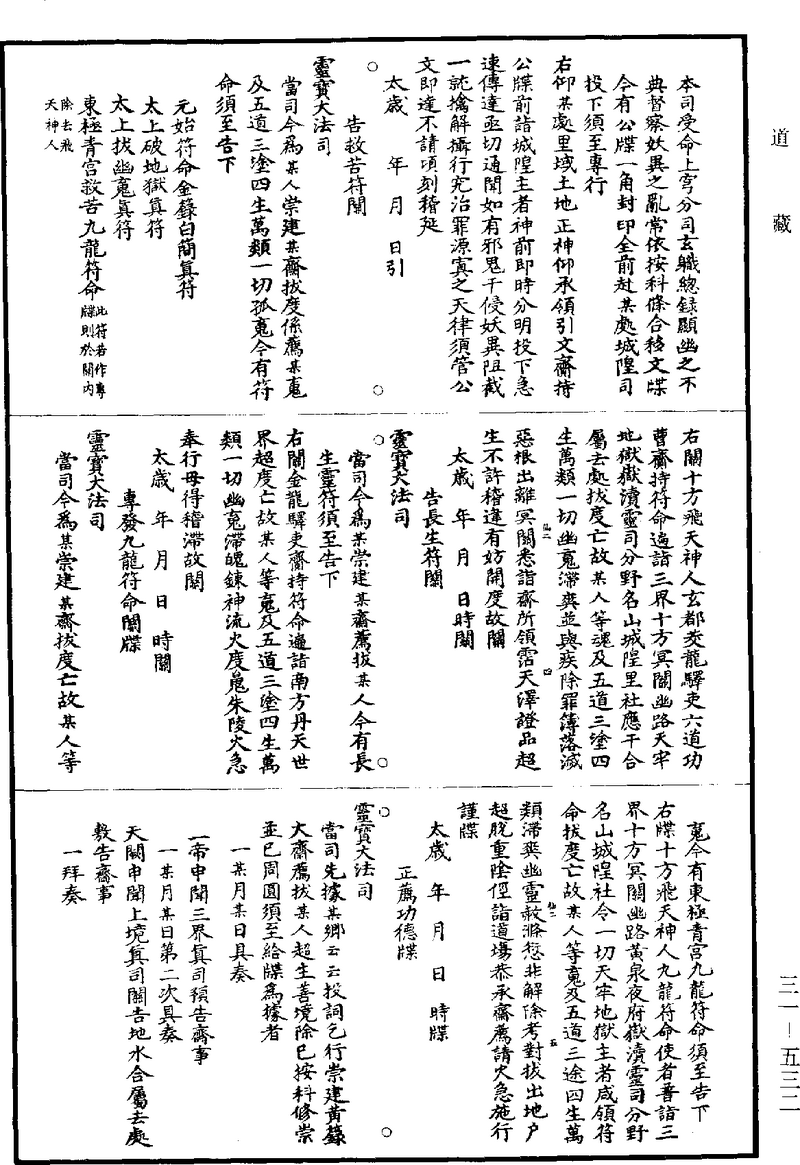 道藏
本司受命上穹分司玄職總錄顯幽之不
典督察妖異之亂常依按科條合移文牒
今有公牒一角封印全前赴某處城隍司
投下須至專行
右仰某處里域土地正神仰承領引文齎持
公牒前詣城隍主者神前即時分明投下急
速傳達亟切通聞如有邪鬼干侵妖異阻截
一誌擒解攝行究治罪源寘之天律須管公
文即達不請頃刻稽延
太歲 年 月 日引
○ 告救苦符關 ○
靈寶大法司
當司今為某人崇建某齋拔度係薦某䰟
及五道三塗四生萬類一切孤䰟今有符
命須至告下
元始符命金籙白簡真符
太上破地獄真符
太上拔幽䰟真符
東極青宮救苦九龍符命此符若作專牒則於關內
除去飛天神人
右關十方飛天神人玄都茭龍驛吏六道功
曹齋持符命遍詣三界十方冥關幽路天牢
地獄獄瀆靈司分野名山城隍里社應干合
屬去處拔度亡故某人等魂及五道三塗四
生萬類一切幽䰟滯爽並與疾除罪簿落滅
惡根出離冥關悉詣齋所領霑天澤證品超
生不許稽違有妨開度故關
太歲 年 月 日時關
告長生符關
靈寶大法司
○當司今為某崇建某齋薦拔某人今有長○
生靈符須至告下
右關金龍驛吏齋持符命遍詣南方丹天世
界超度亡故某人等䰟及五道三塗四生萬
類一切幽䰟滯魄鍊神流火度鬼朱陵火急
奉行毋得稽滯故關
太歲 年 月 日 時關
專發九龍符命關牒
靈寶大法司
當司今為某崇建某齋拔度亡故某人等
䰟今有東極青宮九龍符命須至告下
右牒十方飛天神人九龍符命使者普詣三
界十方冥關幽路黃泉夜府獄瀆靈司分野
名山城隍社令一切天牢地獄主者咸領符
命拔度亡故某人等䰟及五道三途四生萬
類滯爽幽靈赦滌愆非解除考對拔出地户
超脫重陰徑詣道場恭承齋薦請火急施行
謹牒
太歲 年 月 日 時牒
正薦功德牒
○ ○
靈寶大法司
當司先據某鄉云云投詞乞行崇建黃籙
大齋薦拔某人超生善境除已按科修崇
並已周圓須至給牒為據者
一某月某日具奏
一帝申聞三界真司預告齋事
一某月某日第二次具奏
天闕申聞上境真司關告地水合屬去處
敷告齋事
一拜奏
三一—五三二